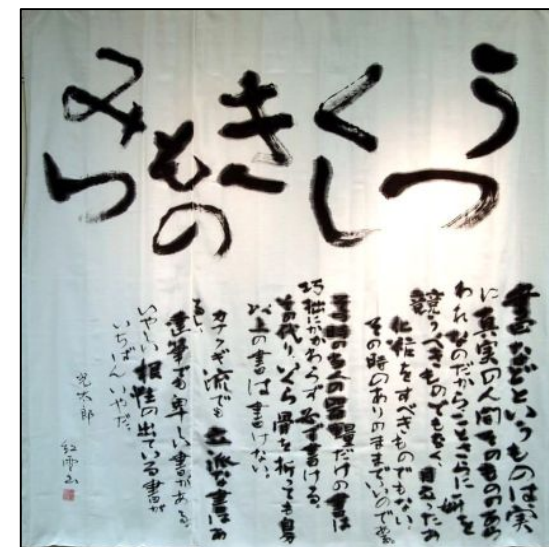 うつ
くし
き
もの
みつ
書などというものは実
に真実の人間そのもののあら
われなのだからことさらに妍を
競うべきものでもなく、目立った
化粧をすべきものでもない、
その時のありのままでいいのである。
器量だけの書は
巧拙にかかわらず必ず書ける。
その代りいくら骨を折っても自
以上の書は書けない。
カナクギ流でも立派な書はあ
るし、
達筆でも卑しい書がある。
いやしい根性の出ている書が
いちばんいやだ。
光太郎